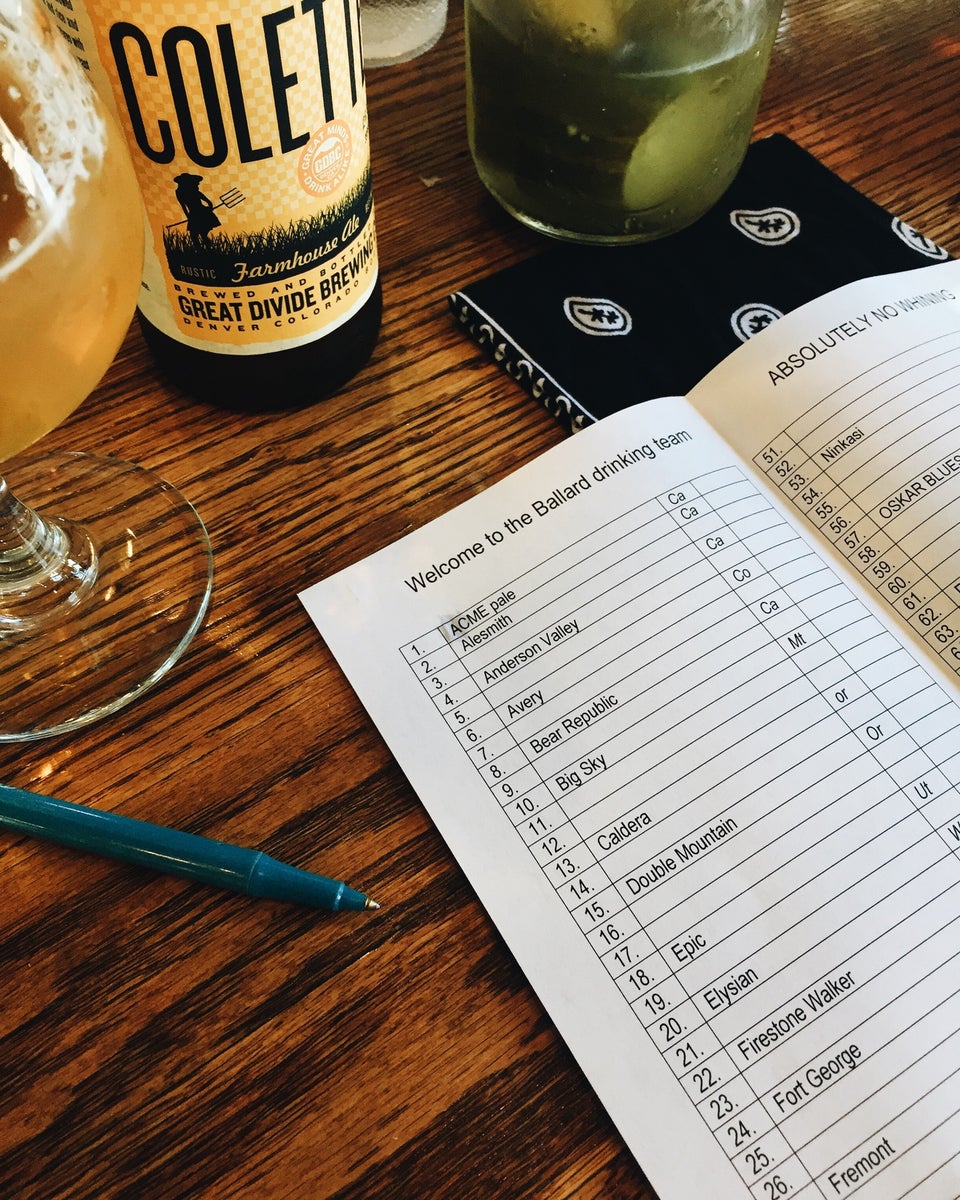 COLETT
GREAT MINDS
GDBC
DRINK ALIKE
RUSTIC Farmhouse Ale
BREWED AND BOTTL
GREAT DIVIDE BREWING
DENVER COLORADO
Welcome to the Ballard drinking team
1. ACME pale Ca
2. Alesmith Ca
3.
4. Anderson Valley Ca
5.
6. Avery Co
7.
8. Bear Republic Ca
9.
10. Big Sky Mt
11.
12.
13. Caldera or
14.
15. Double Mountain Or
16.
17.
18. Epic Ut
19.
20. Elysian W
21.
22. Firestone Walker
23.
24. Fort George
25.
26. Fremont
ABSOLUTELY NO WHINING
51.
52.
53. Ninkasi
54.
55.
56.
57. OSKAR BLUES
58.
59.
60.
61.
62.
63.